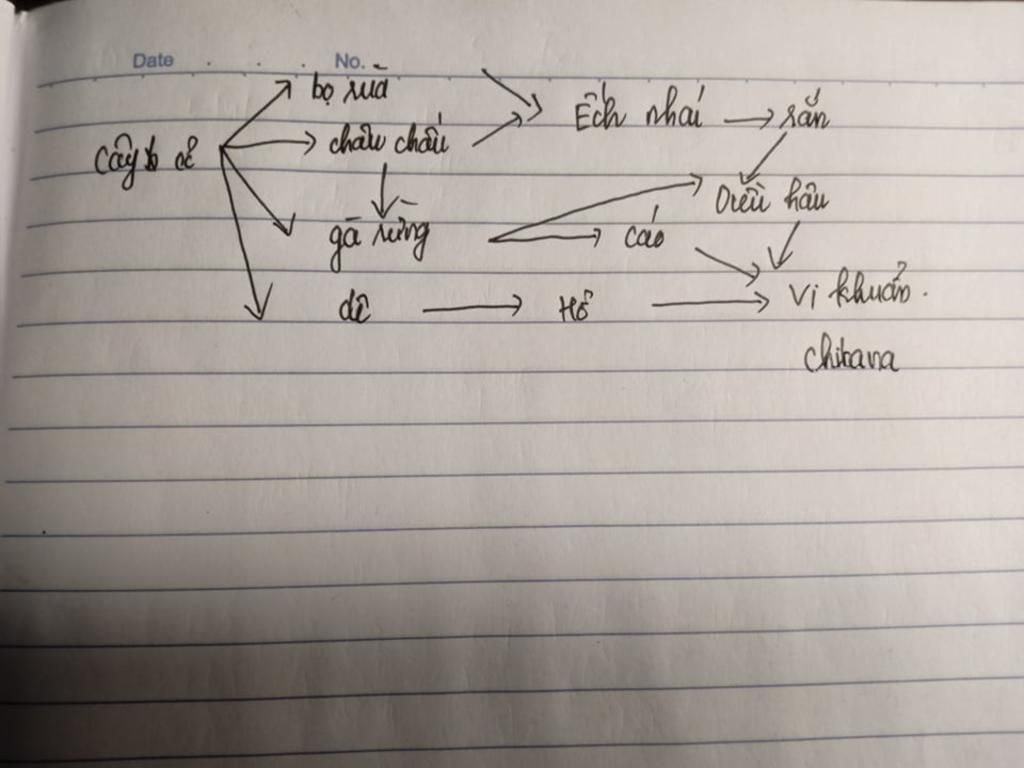 Date No.
bọ rùa
Ếch nhái rắn
Cây cỏ châu chấu
Diều hâu
gà rừng cáo
dê Hổ Vi khuẩn.